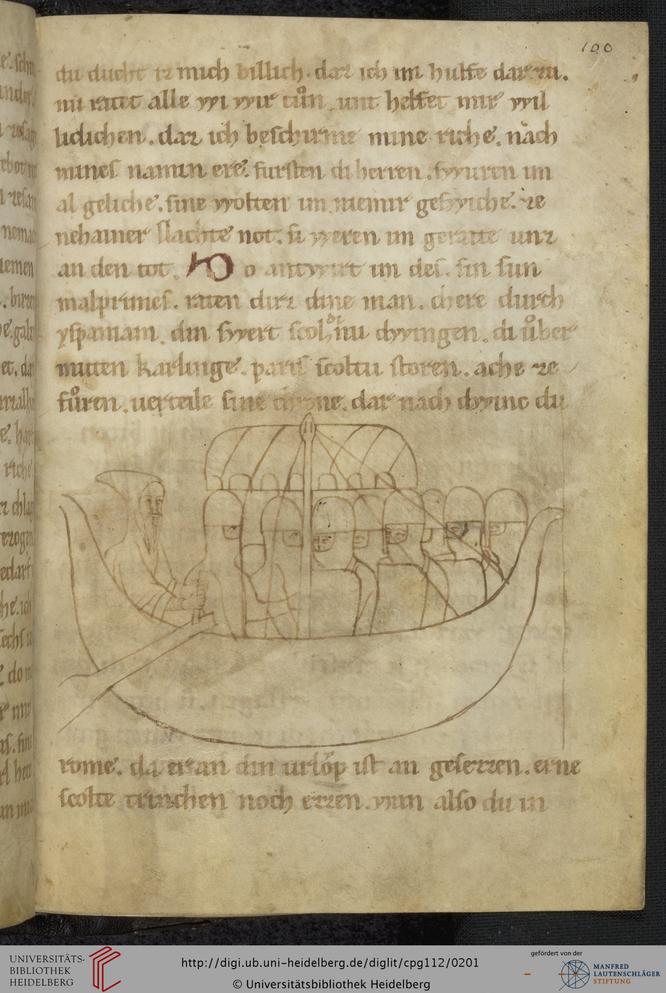 100
du ducht iz mich billich. daz ich im hulfe dar zu.
nu ratet alle wi wir tůn. unt helfet mir wil
lichlichen. daz ich beschirme mine riche. nach
mines namin ere. fursten di herren. swuren im
al geliche. sine wolten im niemir geswiche. ze
nehainer slachte not. si weren im geraite unz
an den tot. Do antwirt im des. sin sun
malprimes. raten dirz dine man. chere durch
yspaniam. din swert scol dir nu dwingen. di über
muten karlinge. paris scoltu storen. ache ze
fůren. uerteile sine chrone. dar nach dwinc du
rome. da er an din urlŏp ist an gesezzen. er ne
scolte trinchen noch ezzen. wan also du in
UNIVERSITÄTS-
BIBLIOTHEK
HEIDELBERG
http://digi.ub.uni-heidelberg.de/diglit/cpg112/0201
© Universitätsbibliothek Heidelberg
gefördert von der
MANFRED
LAUTENSCHLÄGER
STIFTUNG